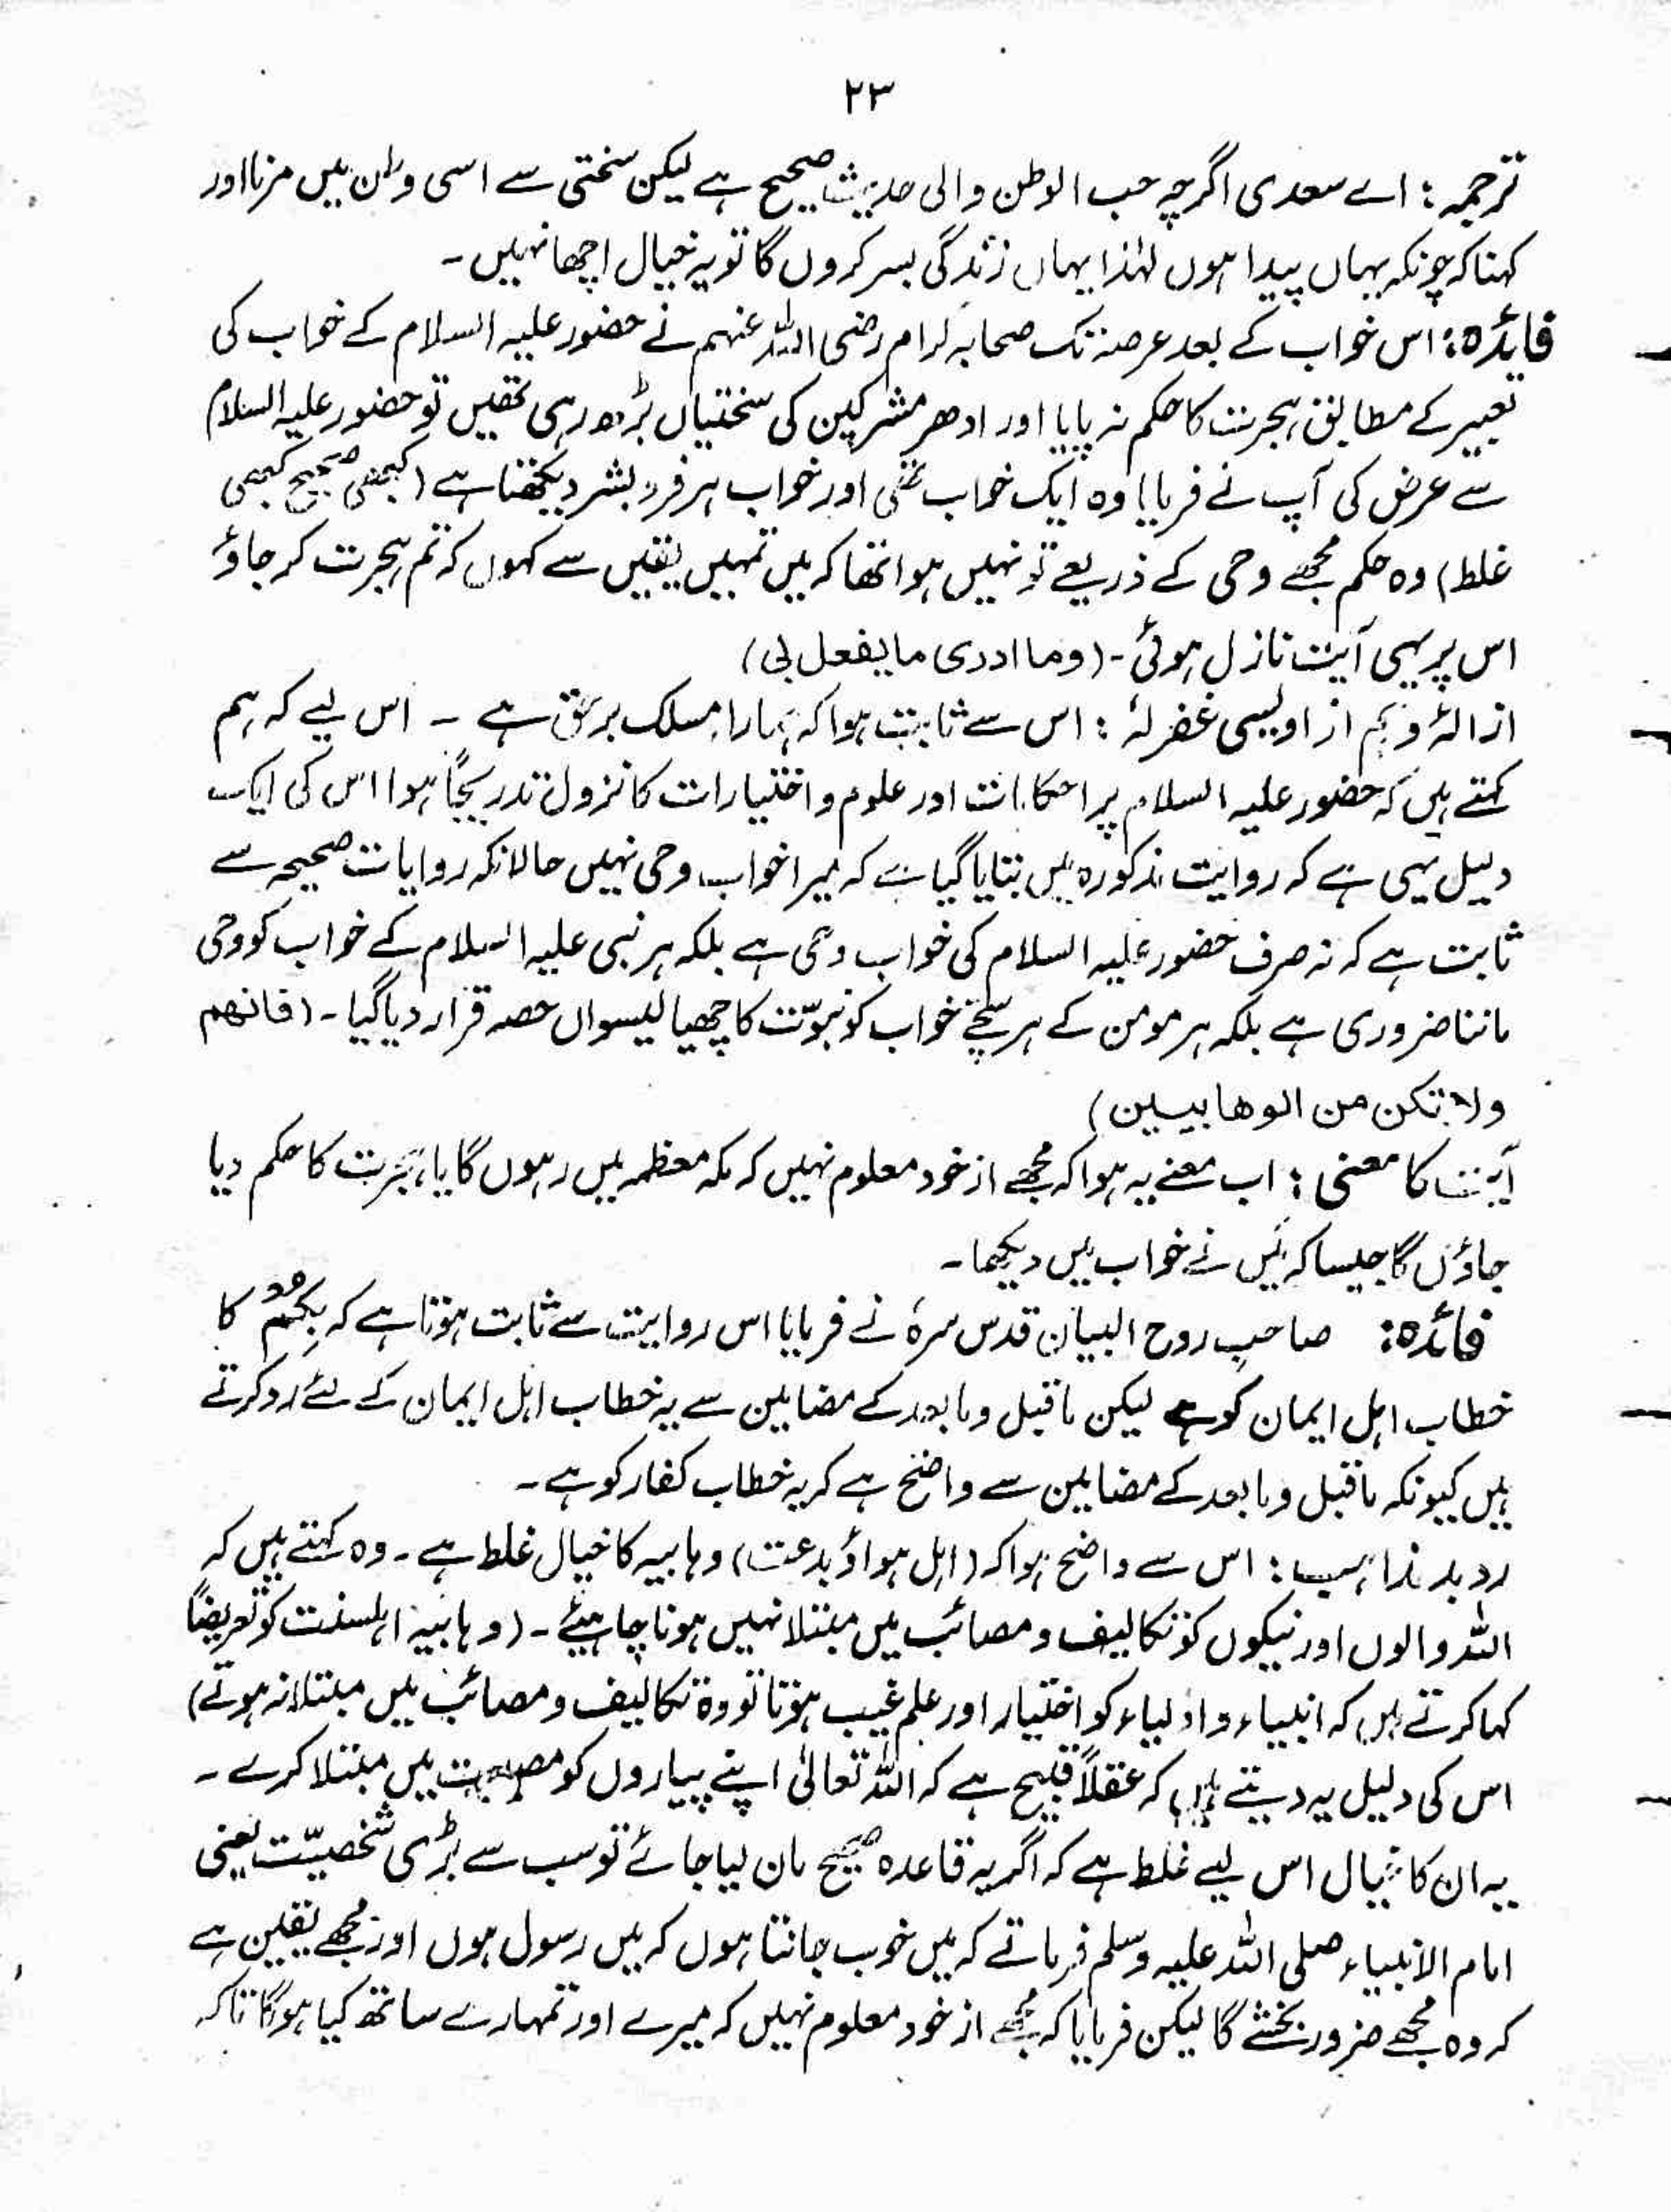 ۲۳
ترجمہ : اے سعدی اگرچہ حب الوطن والی حدیث صحیح ہے لیکن سختی سے اسی وطن میں مرنا اور
کہنا کہ چونکہ یہاں پیدا ہوں لہٰذا یہاں زندگی بسر کروں گا تو یہ خیال اچھا نہیں ۔
فائدہ : اس خواب کے بعد عرصہ تک صحابہ کرام رضی اللہ عنہم نے حضور علیہ السلام کے خواب کی
تعبیر کے مطابق ہجرت کا حکم نہ پایا اور ادھر مشرکین کی سختیاں بڑھ رہی تھیں تو حضور علیہ السلام
سے عرض کی آپ نے فرمایا وہ ایک خواب تھی اور خواب ہر فرد بشر دیکھتا ہے (کبھی صحیح کبھی
غلط) وہ حکم مجھے وحی کے ذریعے تو نہیں ہوا تھا کہ میں تمہیں یقیں سے کہوں کہ تم ہجرت کر جاؤ
اس پر یہی آیت نازل ہوئی ۔ (وما ادری ما یفعل بی)
ازالۂ وہم از اویسی غفرلہٗ : اس سے ثابت ہوا کہ ہمارا مسلک برحق ہے ۔ اس لیے کہ ہم
کہتے ہیں کہ حضور علیہ السلام پر احکامات اور علوم و اختیارات کا نزول تدریجاً ہوا اس کی ایک
دلیل یہی ہے کہ روایت مذکورہ میں بتایا گیا ہے کہ میرا خواب وحی نہیں حالانکہ روایات صحیحہ سے
ثابت ہے کہ نہ صرف حضور علیہ السلام کی خواب وحی ہے بلکہ ہر نبی علیہ السلام کے خواب کو وحی
ماننا ضروری ہے بلکہ ہر مومن کے ہر سچے خواب کو نبوّت کا چھیالیسواں حصہ قرار دیا گیا ۔ (فانھم
ولا تکن من الوھابیین)
آیت کا معنی : اب معنے یہ ہوا کہ مجھے از خود معلوم نہیں کہ مکہ معظمہ میں رہوں گا یا ہجرت کا حکم دیا
جاؤں گا جیسا کہ میں نے خواب میں دیکھا ۔
فائدہ : صاحب روح البیان قدس سرہٗ نے فرمایا اس روایت سے ثابت ہوتا ہے کہ بِکُمْ کا
خطاب اہل ایمان کو ہے لیکن ماقبل و مابعد کے مضامین سے یہ خطاب اہل ایمان کے لئے رد کرتے
ہیں کیونکہ ماقبل و مابعد کے مضامین سے واضح ہے کہ یہ خطاب کفار کو ہے ۔
رد بد مذاہب : اس سے واضح ہوا کہ (اہل ہوا و بدعت) وہابیہ کا خیال غلط ہے ۔ وہ کہتے ہیں کہ
اللہ والوں اور نیکوں کو تکالیف و مصائب میں مبتلا نہیں ہونا چاہیئے ۔ (وہابیہ اہلسنت کو تعریضاً
کہا کرتے ہیں کہ انبیاء و اولیاء کو اختیار اور علم غیب ہوتا تو وہ تکالیف و مصائب میں مبتلا نہ ہوتے)
اس کی دلیل یہ دیتے ہیں کہ عقلاً قبیح ہے کہ اللہ تعالیٰ اپنے پیاروں کو مصیبت میں مبتلا کرے ۔
یہ ان کا خیال اس لیے غلط ہے کہ اگر یہ قاعدہ صحیح مان لیا جائے تو سب سے بڑی شخصیّت یعنی
امام الانبیاء صلی اللہ علیہ وسلم فرماتے کہ میں خوب جانتا ہوں کہ میں رسول ہوں اور مجھے یقین ہے
کہ وہ مجھے ضرور بخشے گا لیکن فرمایا کہ مجھے از خود معلوم نہیں کہ میرے اور تمہارے ساتھ کیا ہوگا تاکہ